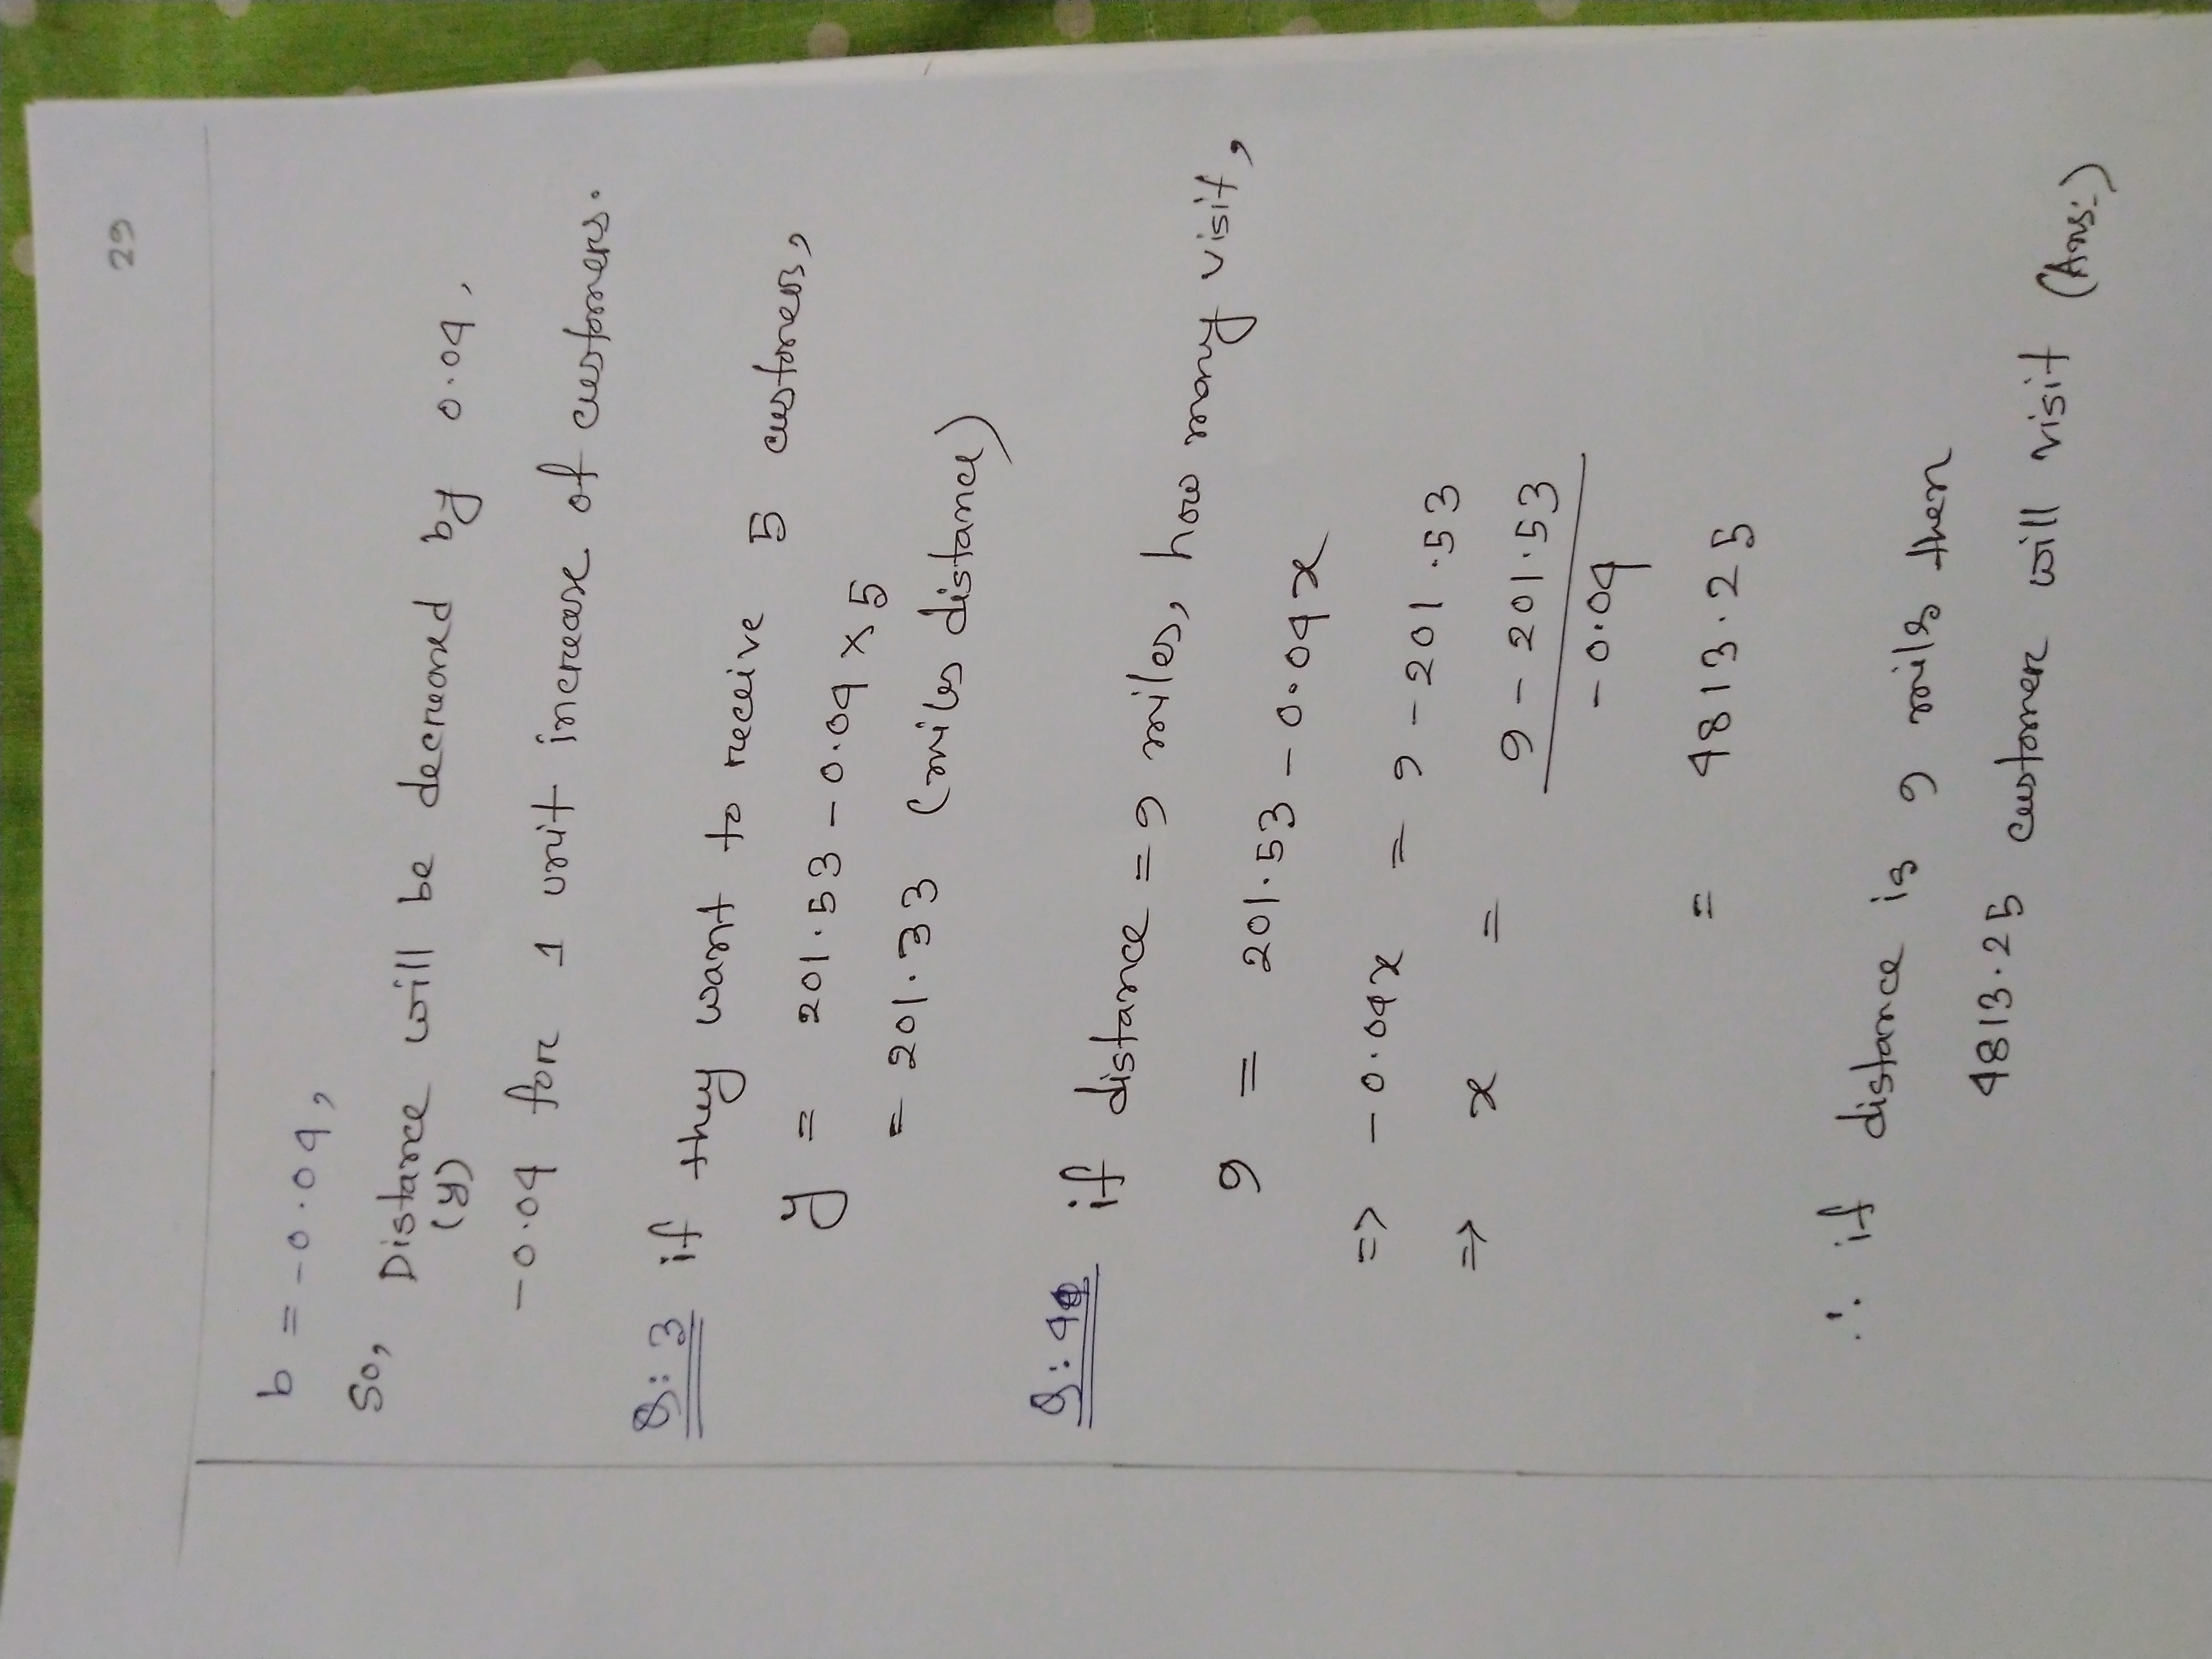 29
b = -0.04,
So, Distance will be decreased by 0.04,
(y)
-0.04 for 1 unit increase of customers.
Q: 3 if they want to receive 5 customers,
y = 201.53 - 0.04 × 5
= 201.33 (miles distance)
Q: 4 if distance = 9 miles, how many visit,
9 = 201.53 - 0.04x
=> -0.04x = 9 - 201.53
=> x = 9 - 201.53
-0.04
= 4813.25
∴ if distance is 9 miles then
4813.25 customer will visit (Ans:)